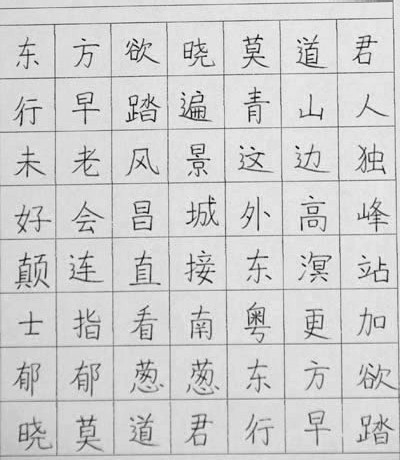 东方欲晓莫道君
行早踏遍青山人
未老风景这边独
好会昌城外高峰
颠连直接东溟站
士指看南粤更加
郁郁葱葱东方欲
晓莫道君行早踏